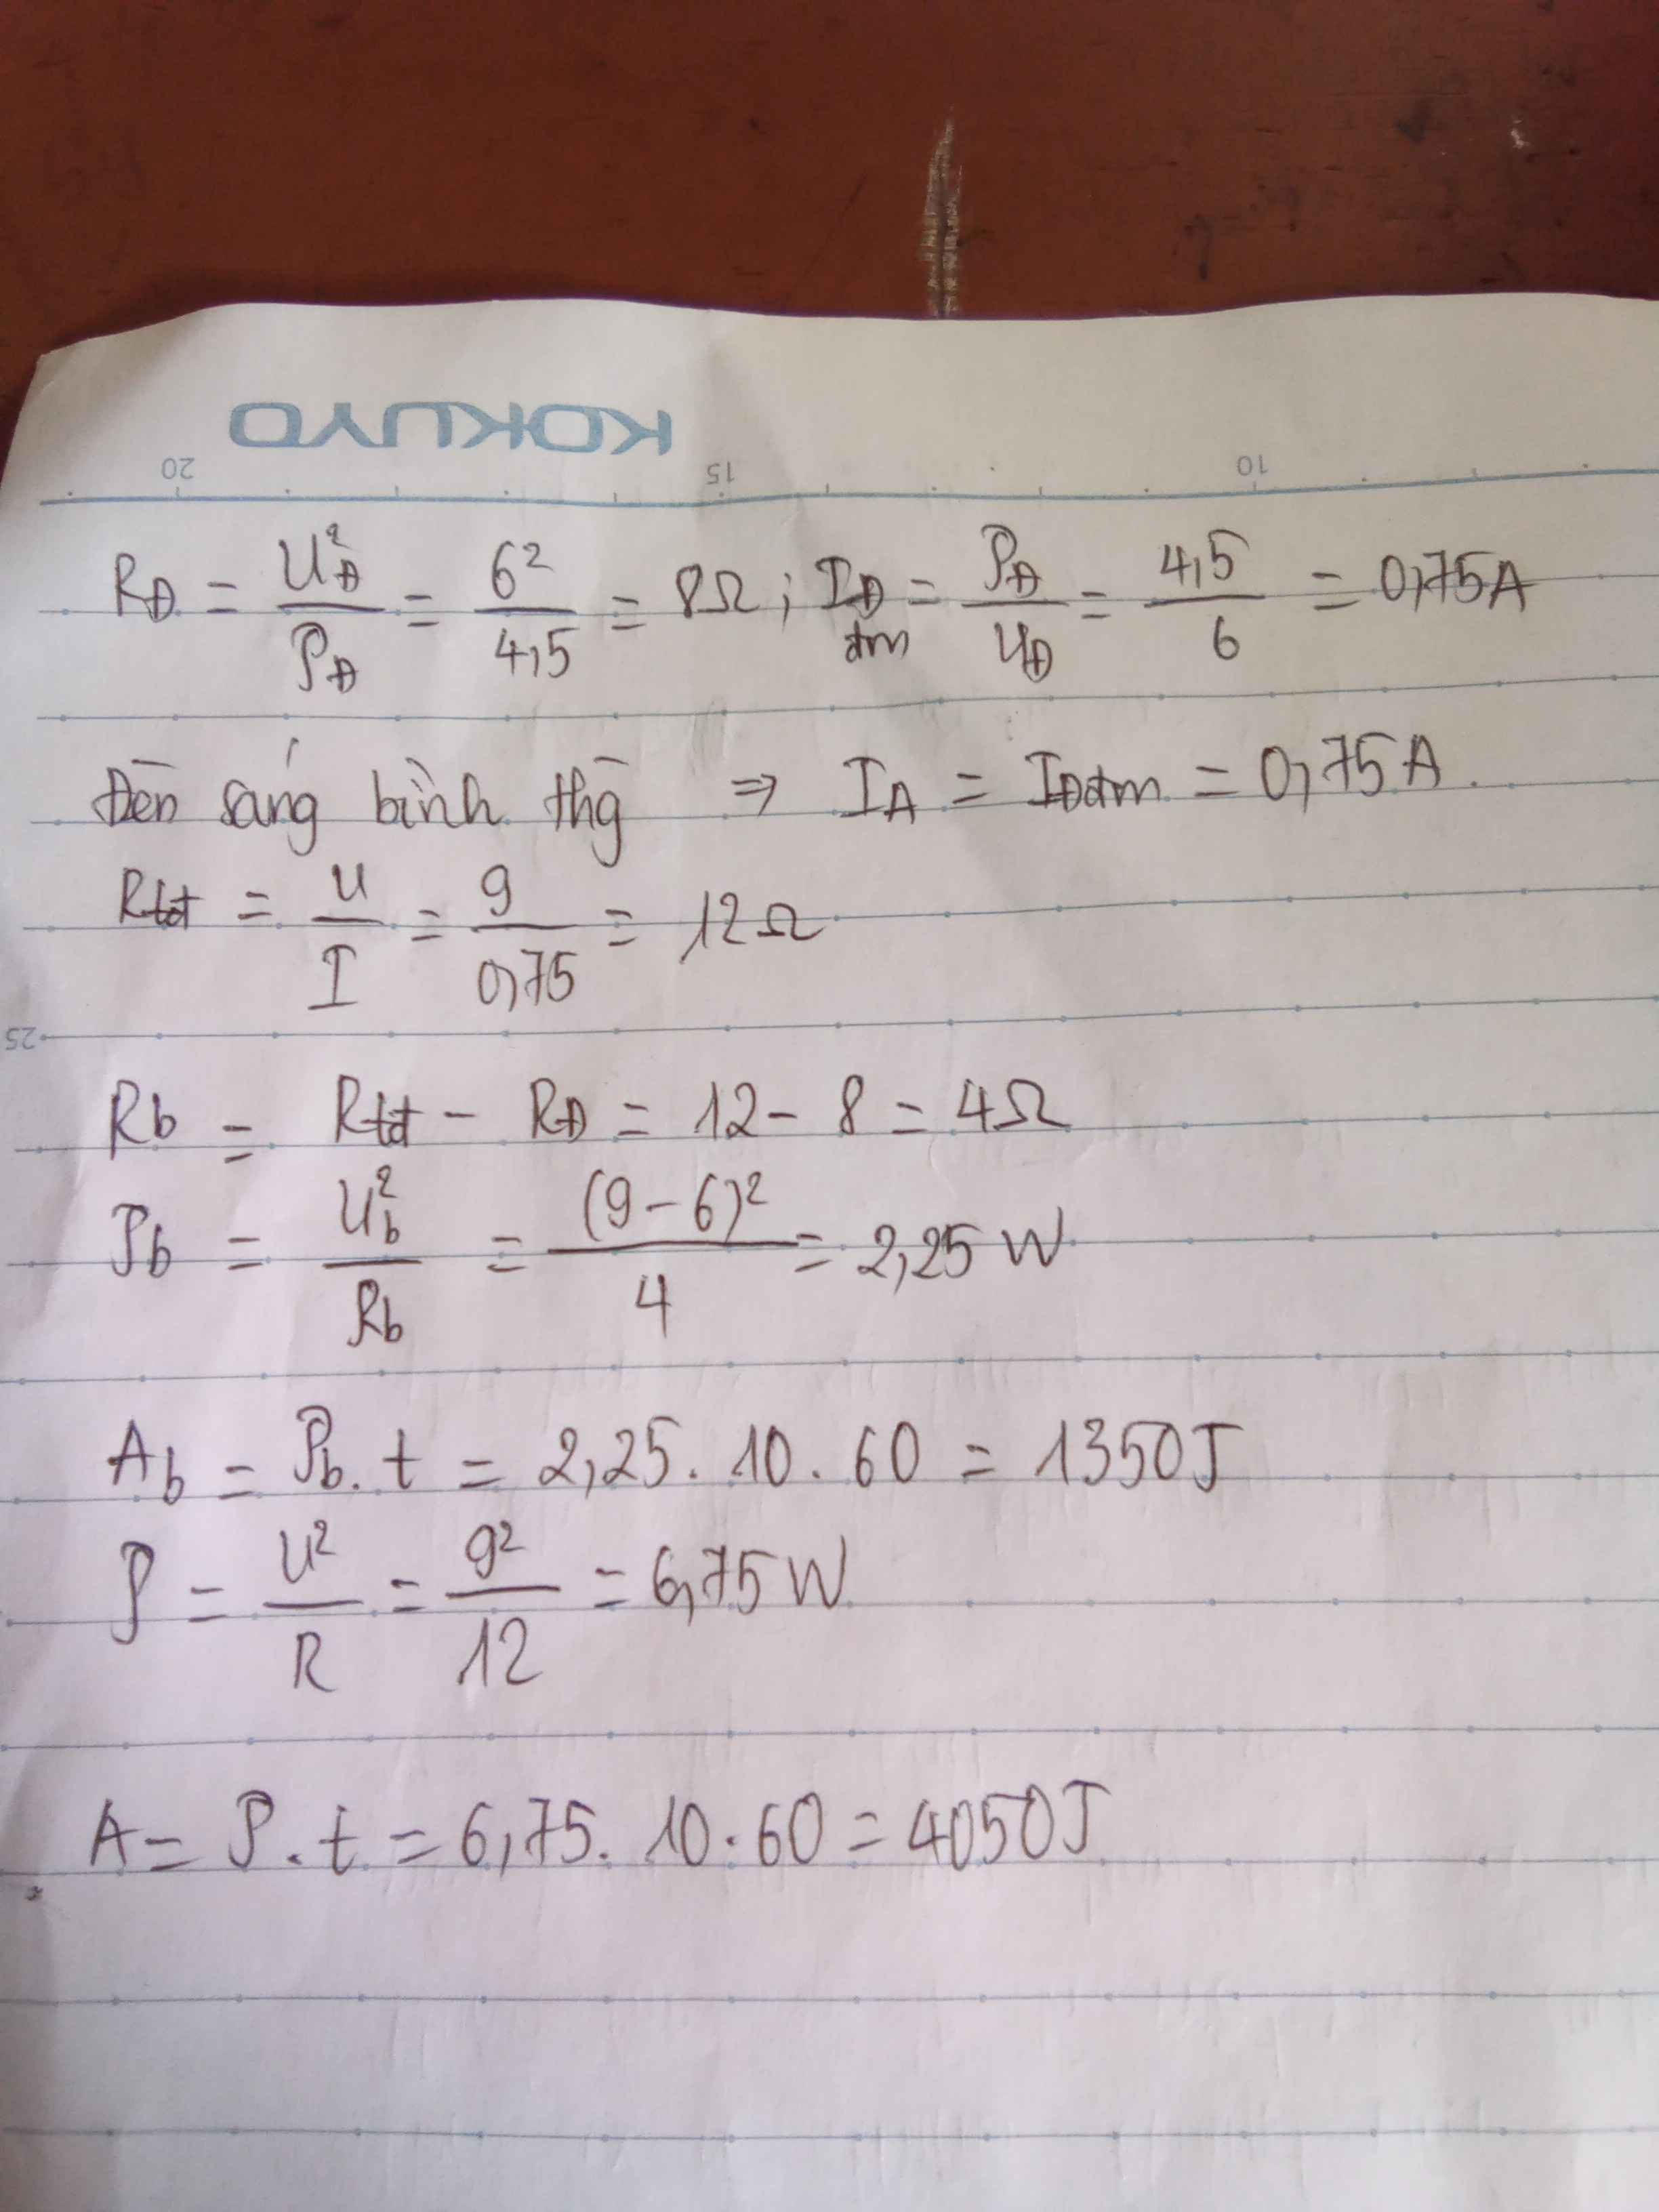 KOKUYO
20 15 10
R_Đ = U_Đ² / P_Đ = 6² / 4,5 = 8Ω ; I_Đđm = P_Đ / U_Đ = 4,5 / 6 = 0,75A
Đèn sáng bình thg ⇒ I_A = I_Đđm = 0,75A.
Rtđ = U / I = 9 / 0,75 = 12Ω
25
Rb = Rtđ - R_Đ = 12 - 8 = 4Ω
P_b = U_b² / R_b = (9-6)² / 4 = 2,25 W
A_b = P_b . t = 2,25 . 10 . 60 = 1350J
P = U² / R = 9² / 12 = 6,75 W
A = P . t = 6,75 . 10 . 60 = 4050J